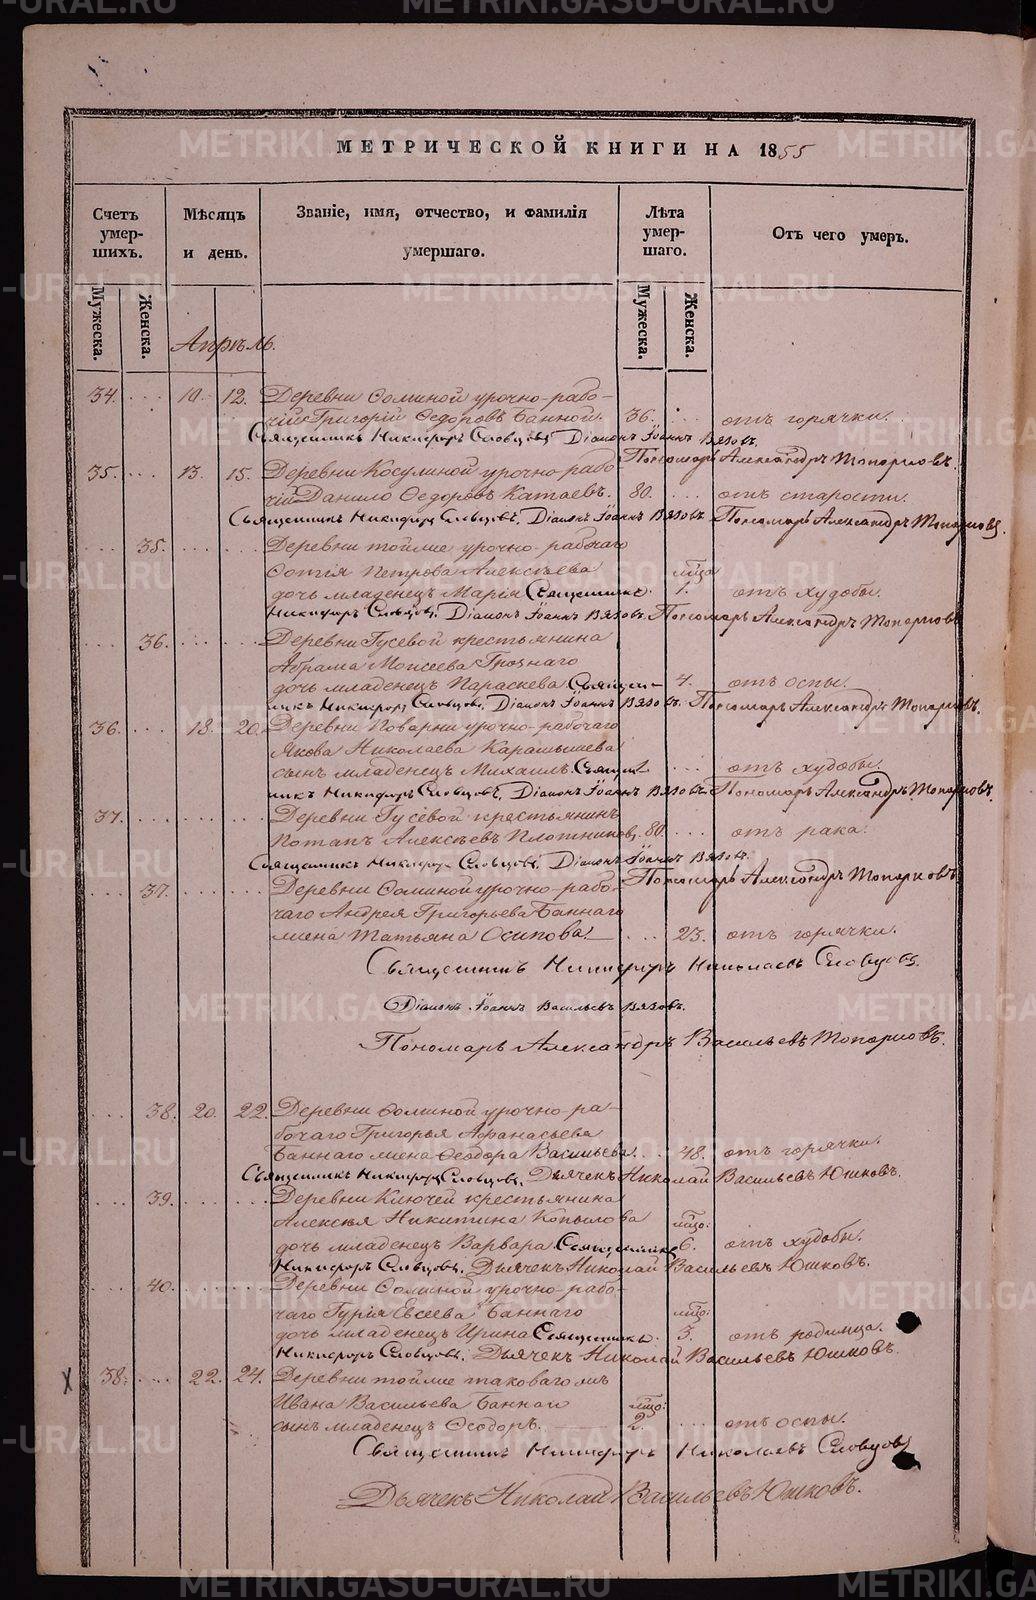 МЕТРИЧЕСКОЙ КНИГИ НА 1855
Счетъ умер-шихъ.
Мѣсяцъ и день.
Званіе, имя, отчество, и фамилія умершаго.
Лѣта умер-шаго.
Отъ чего умеръ.
Мужеска. Женска.
Мужеска. Женска.
Апрѣль.
34. 10. 12. Деревни Соминой урочно-рабо-
чій Григорій Ѳедоровъ Банной. 36. отъ горячки.
Священникъ Никифоръ Словцовъ, Діаконъ Іоаннъ Вязовъ.
Пономарь Александръ Топорковъ.
35. 13. 15. Деревни Косулиной урочно-рабо
чій Данило Ѳедоровъ Катаевъ. 80. отъ старости.
Священникъ Никифоръ Словцовъ. Діаконъ Іоаннъ Вязовъ. Пономарь Александръ Топорковъ.
35. Деревни тойже урочно-рабочаго
Сотія Петрова Алексѣева мѣсяц.
дочь младенецъ Марія Священникъ 1. отъ худобы.
Никифоръ Словцовъ. Діаконъ Іоаннъ Вязовъ. Пономарь Александръ Топорковъ
36. Деревни Гусевой крестьянина
Абрама Моисеева Грознаго
дочь младенецъ Параскева Священ- 4. отъ оспы.
никъ Никифоръ Словцовъ. Діаконъ Іоаннъ Вязовъ. Пономарь Александръ Топорковъ.
36. 18. 20. Деревни Поварни урочно-рабочаго
Якова Николаева Карамышева
сынъ младенецъ Михаилъ. Священ отъ худобы.
никъ Никифоръ Словцовъ. Діаконъ Іоаннъ Вязовъ. Пономарь Александръ Топорковъ.
37. Деревни Гусевой крестьянинъ
Потапъ Алексѣевъ Плотниковъ. 80. отъ рака.
Священникъ Никифоръ Словцовъ. Діаконъ Іоаннъ Вязовъ.
Пономарь Александръ Топорковъ
37. Деревни Соминой урочно-рабо-
чаго Андрея Григорьева Баннаго
жена Татьяна Осипова. 23. отъ горячки.
Священникъ Никифоръ Николаевъ Словцовъ.
Діаконъ Іоаннъ Васильевъ Вязовъ.
Пономарь Александръ Васильевъ Топорковъ.
38. 20. 22. Деревни Соминой урочно-ра-
бочаго Григорья Афанасьева
Баннаго жена Ѳеодора Васильева. 48. отъ горячки.
Священникъ Никифоръ Словцовъ. Дьячекъ Николай Васильевъ Юшковъ.
39. Деревни Ключей крестьянина
Алексѣя Никитина Копылова мѣсяц.
дочь младенецъ Варвара Священникъ 6. отъ худобы.
Никифоръ Словцовъ. Дьячекъ Николай Васильевъ Юшковъ.
40. Деревни Соминой урочно-рабо-
чаго Гурія Евсеева Баннаго мѣсяц.
дочь младенецъ Ирина Священникъ. 3. отъ родимца.
Никифоръ Словцовъ. Дьячекъ Николай Васильевъ Юшковъ.
38. 22. 24. Деревни тойже таковаго жъ
Ивана Васильева Баннаго мѣсяц.
сынъ младенецъ Ѳеодоръ. 2. отъ оспы.
Священникъ Никифоръ Николаевъ Словцовъ
Дьячекъ Николай Васильевъ Юшковъ.
METRIKI.GASO-URAL.RU